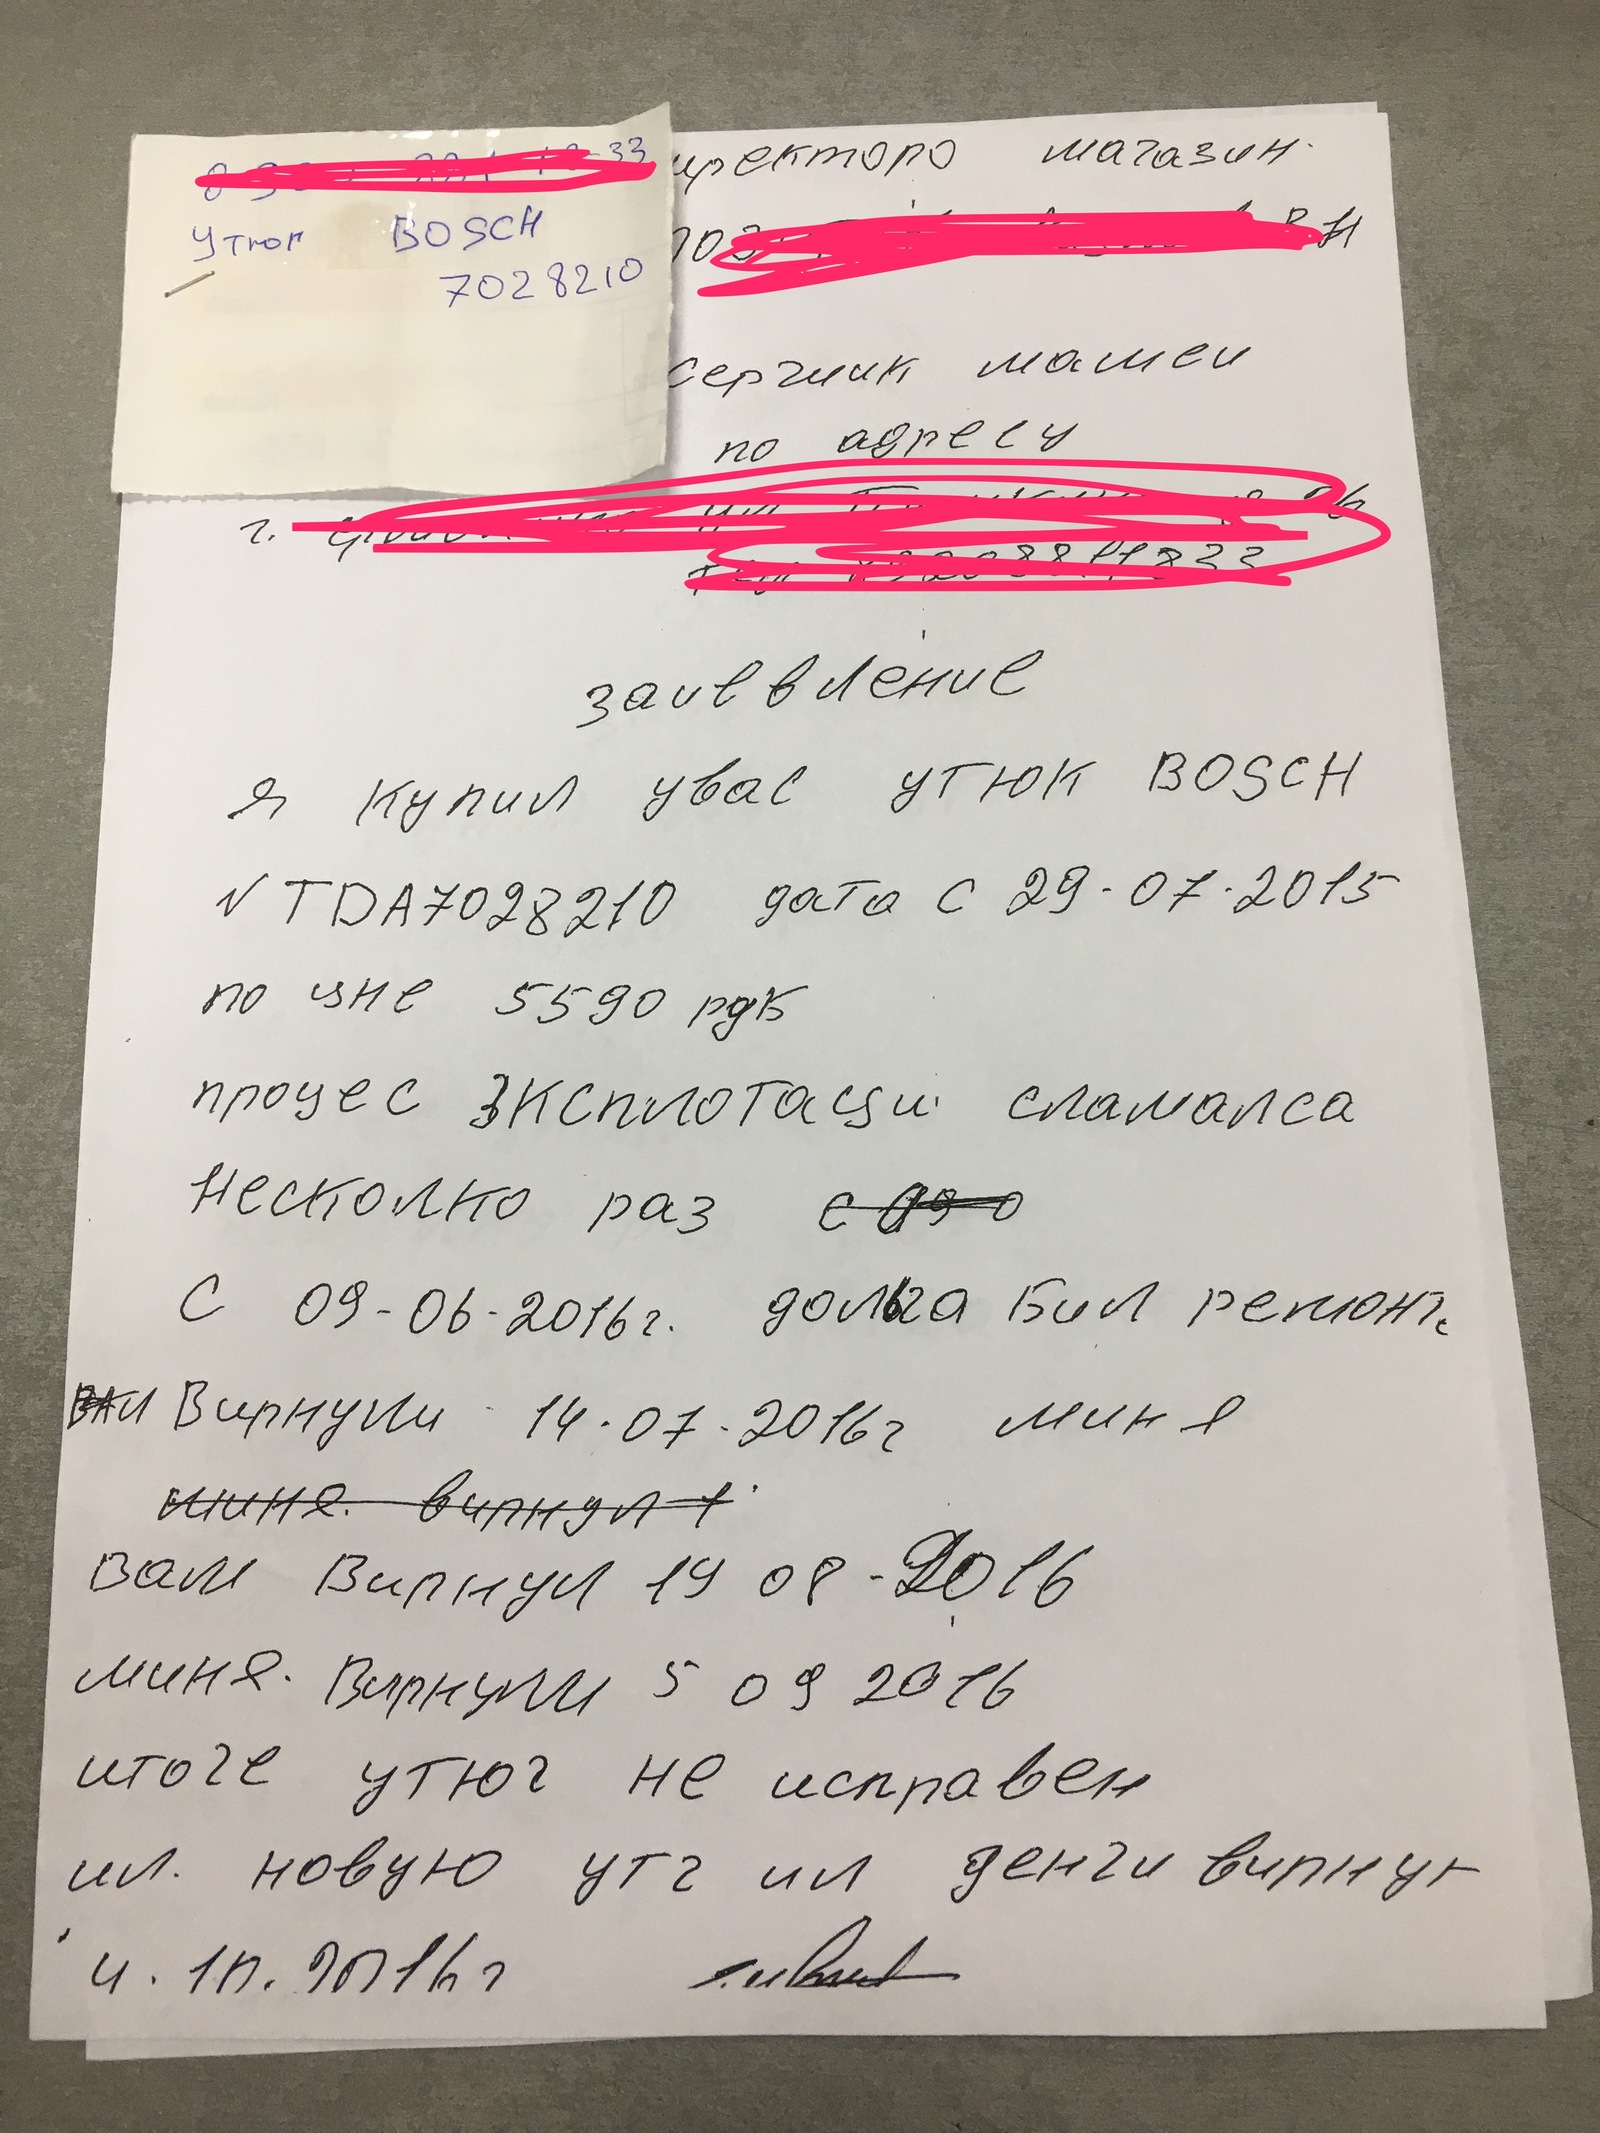 утюг BOSCH
7028210
иректоро магазин
по адресу
г.
заиевление
я купил увас утюк BOSCH
N TDA7028210 дата с 29-07-2015
по цне 5590 рдк
процес эксплотаци сламалса
Несколко раз
С 09-06-2016г. долга Бил ремонт
Вирнули 14.07.2016г миня
миня. вирнул
вам Вирнул 19 08-2016
миня. Вирнули 5 09 2016
итоге утюг не исправен
ил. новую утг ил денги вирнут
4.10.2016г